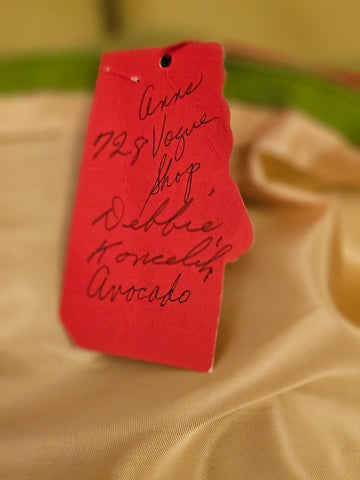 Anns
728 Vogue
Shop
Debbie
Koncelik
Avocado